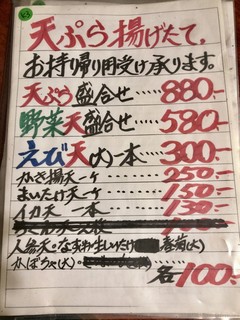 天ぷら揚げたて。
お持ち帰り用受け承ります。
天ぷら盛合せ……880.-
野菜天盛合せ……580.-
えび天(大)一本…300.-
かき揚天一ケ……250.-
まいたけ天一ケ……150.-
イカ天 一本……130.-
人参天・なす 生しいたけ 春菊(大)
かぼちゃ(大)
各100.-